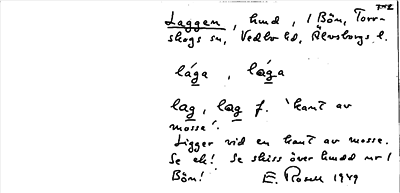 Laggen, hmd, i Bön, Torr-
skogs sn, Vedbo hd, Älvsborgs l.
lága, lága
lag, lag f. 'kant av
mosse'.
Ligger vid en kant av mosse.
Se ek! Se skiss över hmdd nr 1
Bön! E. Rosell 1949